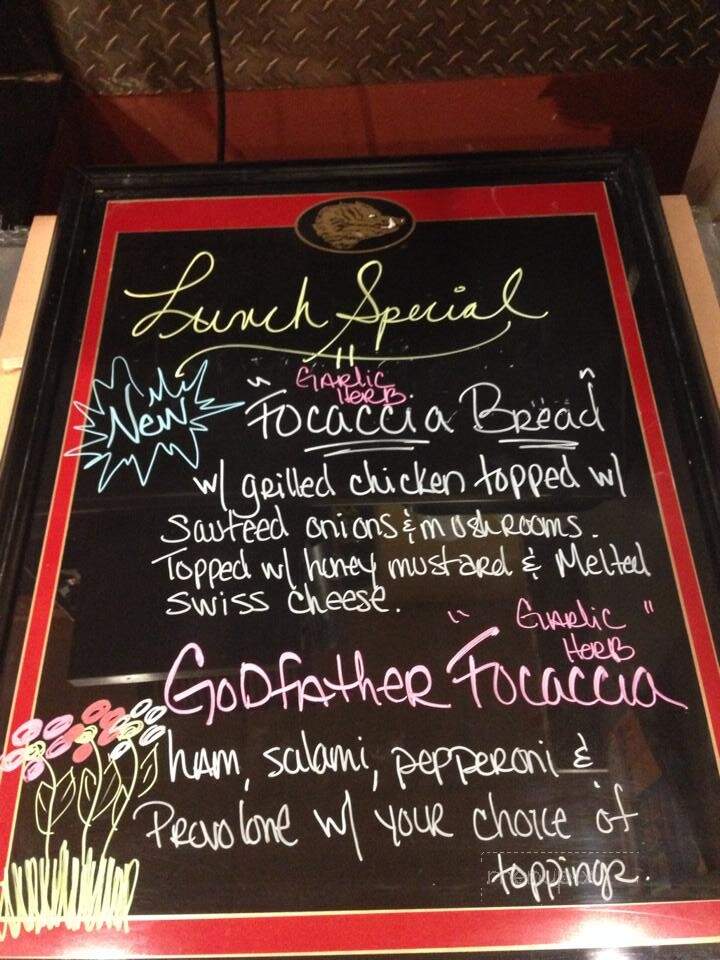 Lunch Special
New
"Garlic Herb
Focaccia Bread"
w/ grilled chicken topped w/
sauteed onions & mushrooms.
Topped w/ huney mustard & Melted
swiss cheese.
"Garlic Herb"
Godfather Focaccia
ham, salami, pepperoni &
Provolone w/ your choice of
toppings.